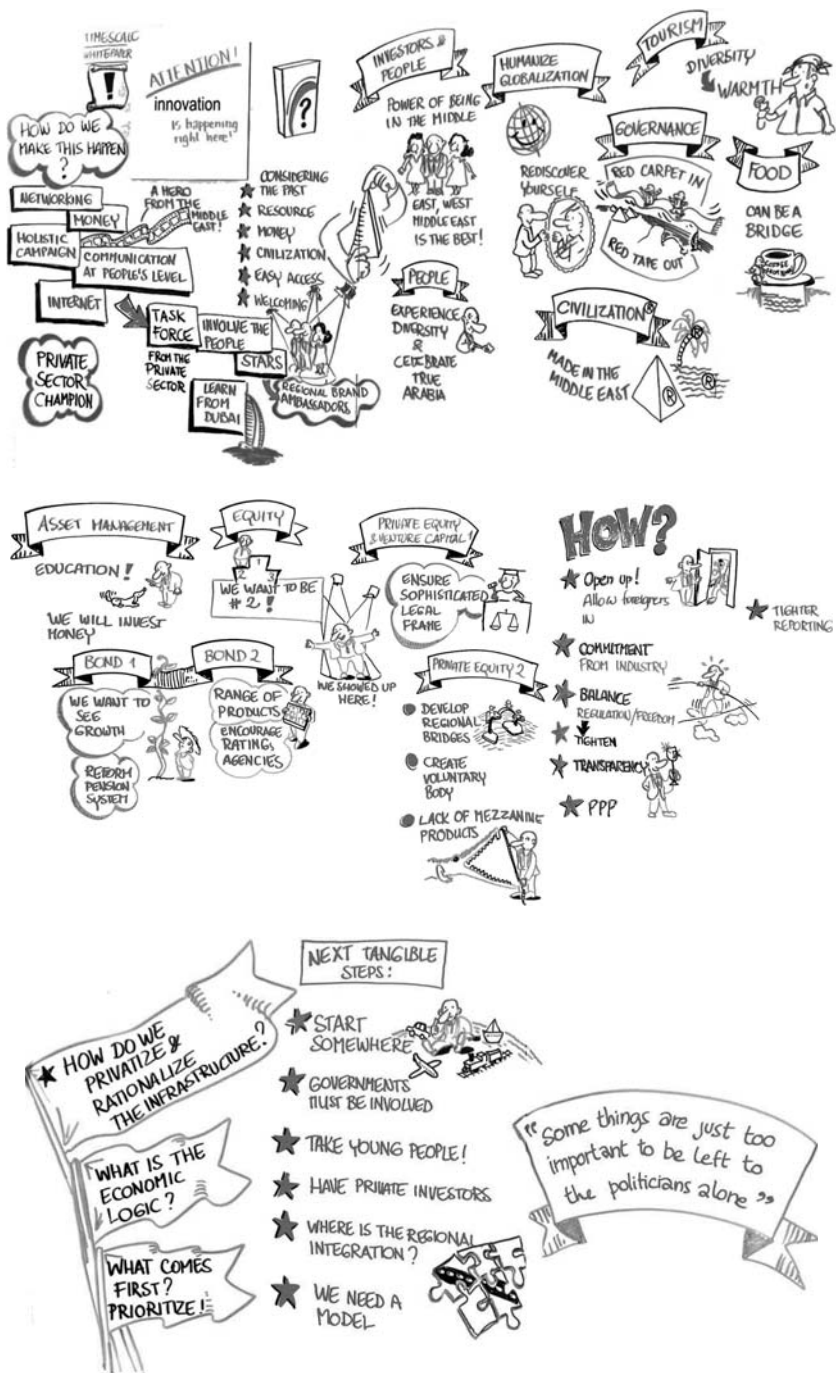 TIMESCALE
WHITEPAPER
!
ATTENTION!
innovation
is happening
right here!
?
HOW DO WE
MAKE THIS HAPPEN
?
NETWORKING
MONEY
A HERO
FROM THE
MIDDLE
EAST!
HOLISTIC
CAMPAIGN
COMMUNICATION
AT PEOPLE'S LEVEL
INTERNET
TASK
FORCE
FROM THE
PRIVATE
SECTOR
INVOLVE THE
PEOPLE
STARS
PRIVATE
SECTOR
CHAMPION
LEARN
FROM
DUBAI
REGIONAL BRAND
AMBASSADORS
CONSIDERING
THE PAST
RESOURCE
MONEY
CIVILIZATION
EASY ACCESS
WELCOMING
INVESTORS &
PEOPLE
POWER OF BEING
IN THE MIDDLE
EAST, WEST
MIDDLE EAST
IS THE BEST!
PEOPLE
EXPERIENCE
DIVERSITY
&
CELEBRATE
TRUE
ARABIA
HUMANIZE
GLOBALIZATION
REDISCOVER
YOURSELF
TOURISM
DIVERSITY
WARMTH
GOVERNANCE
RED CARPET IN
RED TAPE OUT
FOOD
CAN BE A
BRIDGE
CIVILIZATION®
MADE IN THE
MIDDLE EAST
®
®
ASSET MANAGEMENT
EDUCATION!
WE WILL INVEST
MONEY
EQUITY
1
2
3
WE WANT TO BE
#2!
WE SHOWED UP
HERE!
BOND 1
WE WANT TO
SEE
GROWTH
REFORM
PENSION
SYSTEM
BOND 2
RANGE OF
PRODUCTS
ENCOURAGE
RATINGS
AGENCIES
PRIVATE EQUITY
& VENTURE CAPITAL 1
ENSURE
SOPHISTICATED
LEGAL
FRAME
PRIVATE EQUITY 2
DEVELOP
REGIONAL
BRIDGES
CREATE
VOLUNTARY
BODY
LACK OF MEZZANINE
PRODUCTS
HOW?
Open up!
Allow foreigners
IN
COMMITMENT
FROM INDUSTRY
BALANCE
REGULATION/FREEDOM
TIGHTEN
TRANSPARENCY
PPP
TIGHTER
REPORTING
HOW DO WE
PRIVATIZE &
RATIONALIZE
THE INFRASTRUCTURE?
WHAT IS THE
ECONOMIC
LOGIC?
WHAT COMES
FIRST?
PRIORITIZE!
NEXT TANGIBLE
STEPS:
START
SOMEWHERE
GOVERNMENTS
MUST BE INVOLVED
TAKE YOUNG PEOPLE!
HAVE PRIVATE INVESTORS
WHERE IS THE REGIONAL
INTEGRATION?
WE NEED A
MODEL
"Some things are just too
important to be left to
the politicians alone"